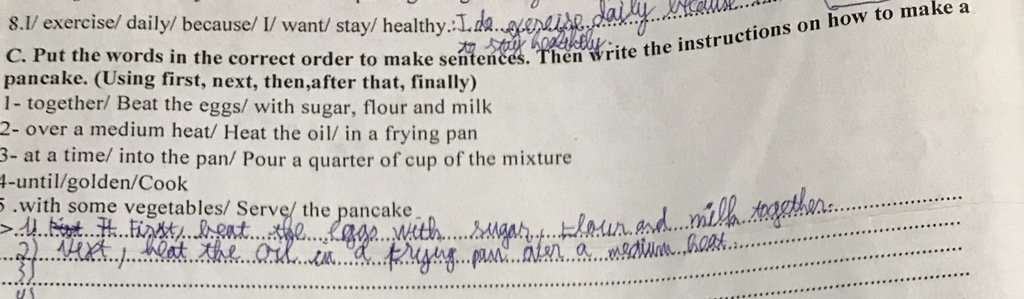 8.I/ exercise/ daily/ because/ I/ want/ stay/ healthy.:I do exercise daily because
to stay
C. Put the words in the correct order to make sentences. Then write the instructions on how to make a
pancake. (Using first, next, then,after that, finally)
1- together/ Beat the eggs/ with sugar, flour and milk
2- over a medium heat/ Heat the oil/ in a frying pan
3- at a time/ into the pan/ Pour a quarter of cup of the mixture
4-until/golden/Cook
5 .with some vegetables/ Serve/ the pancake
-> 1) First, beat the eggs with sugar, flour and milk together.
2) Next, heat the oil in a frying pan over a medium heat.
3)
4)